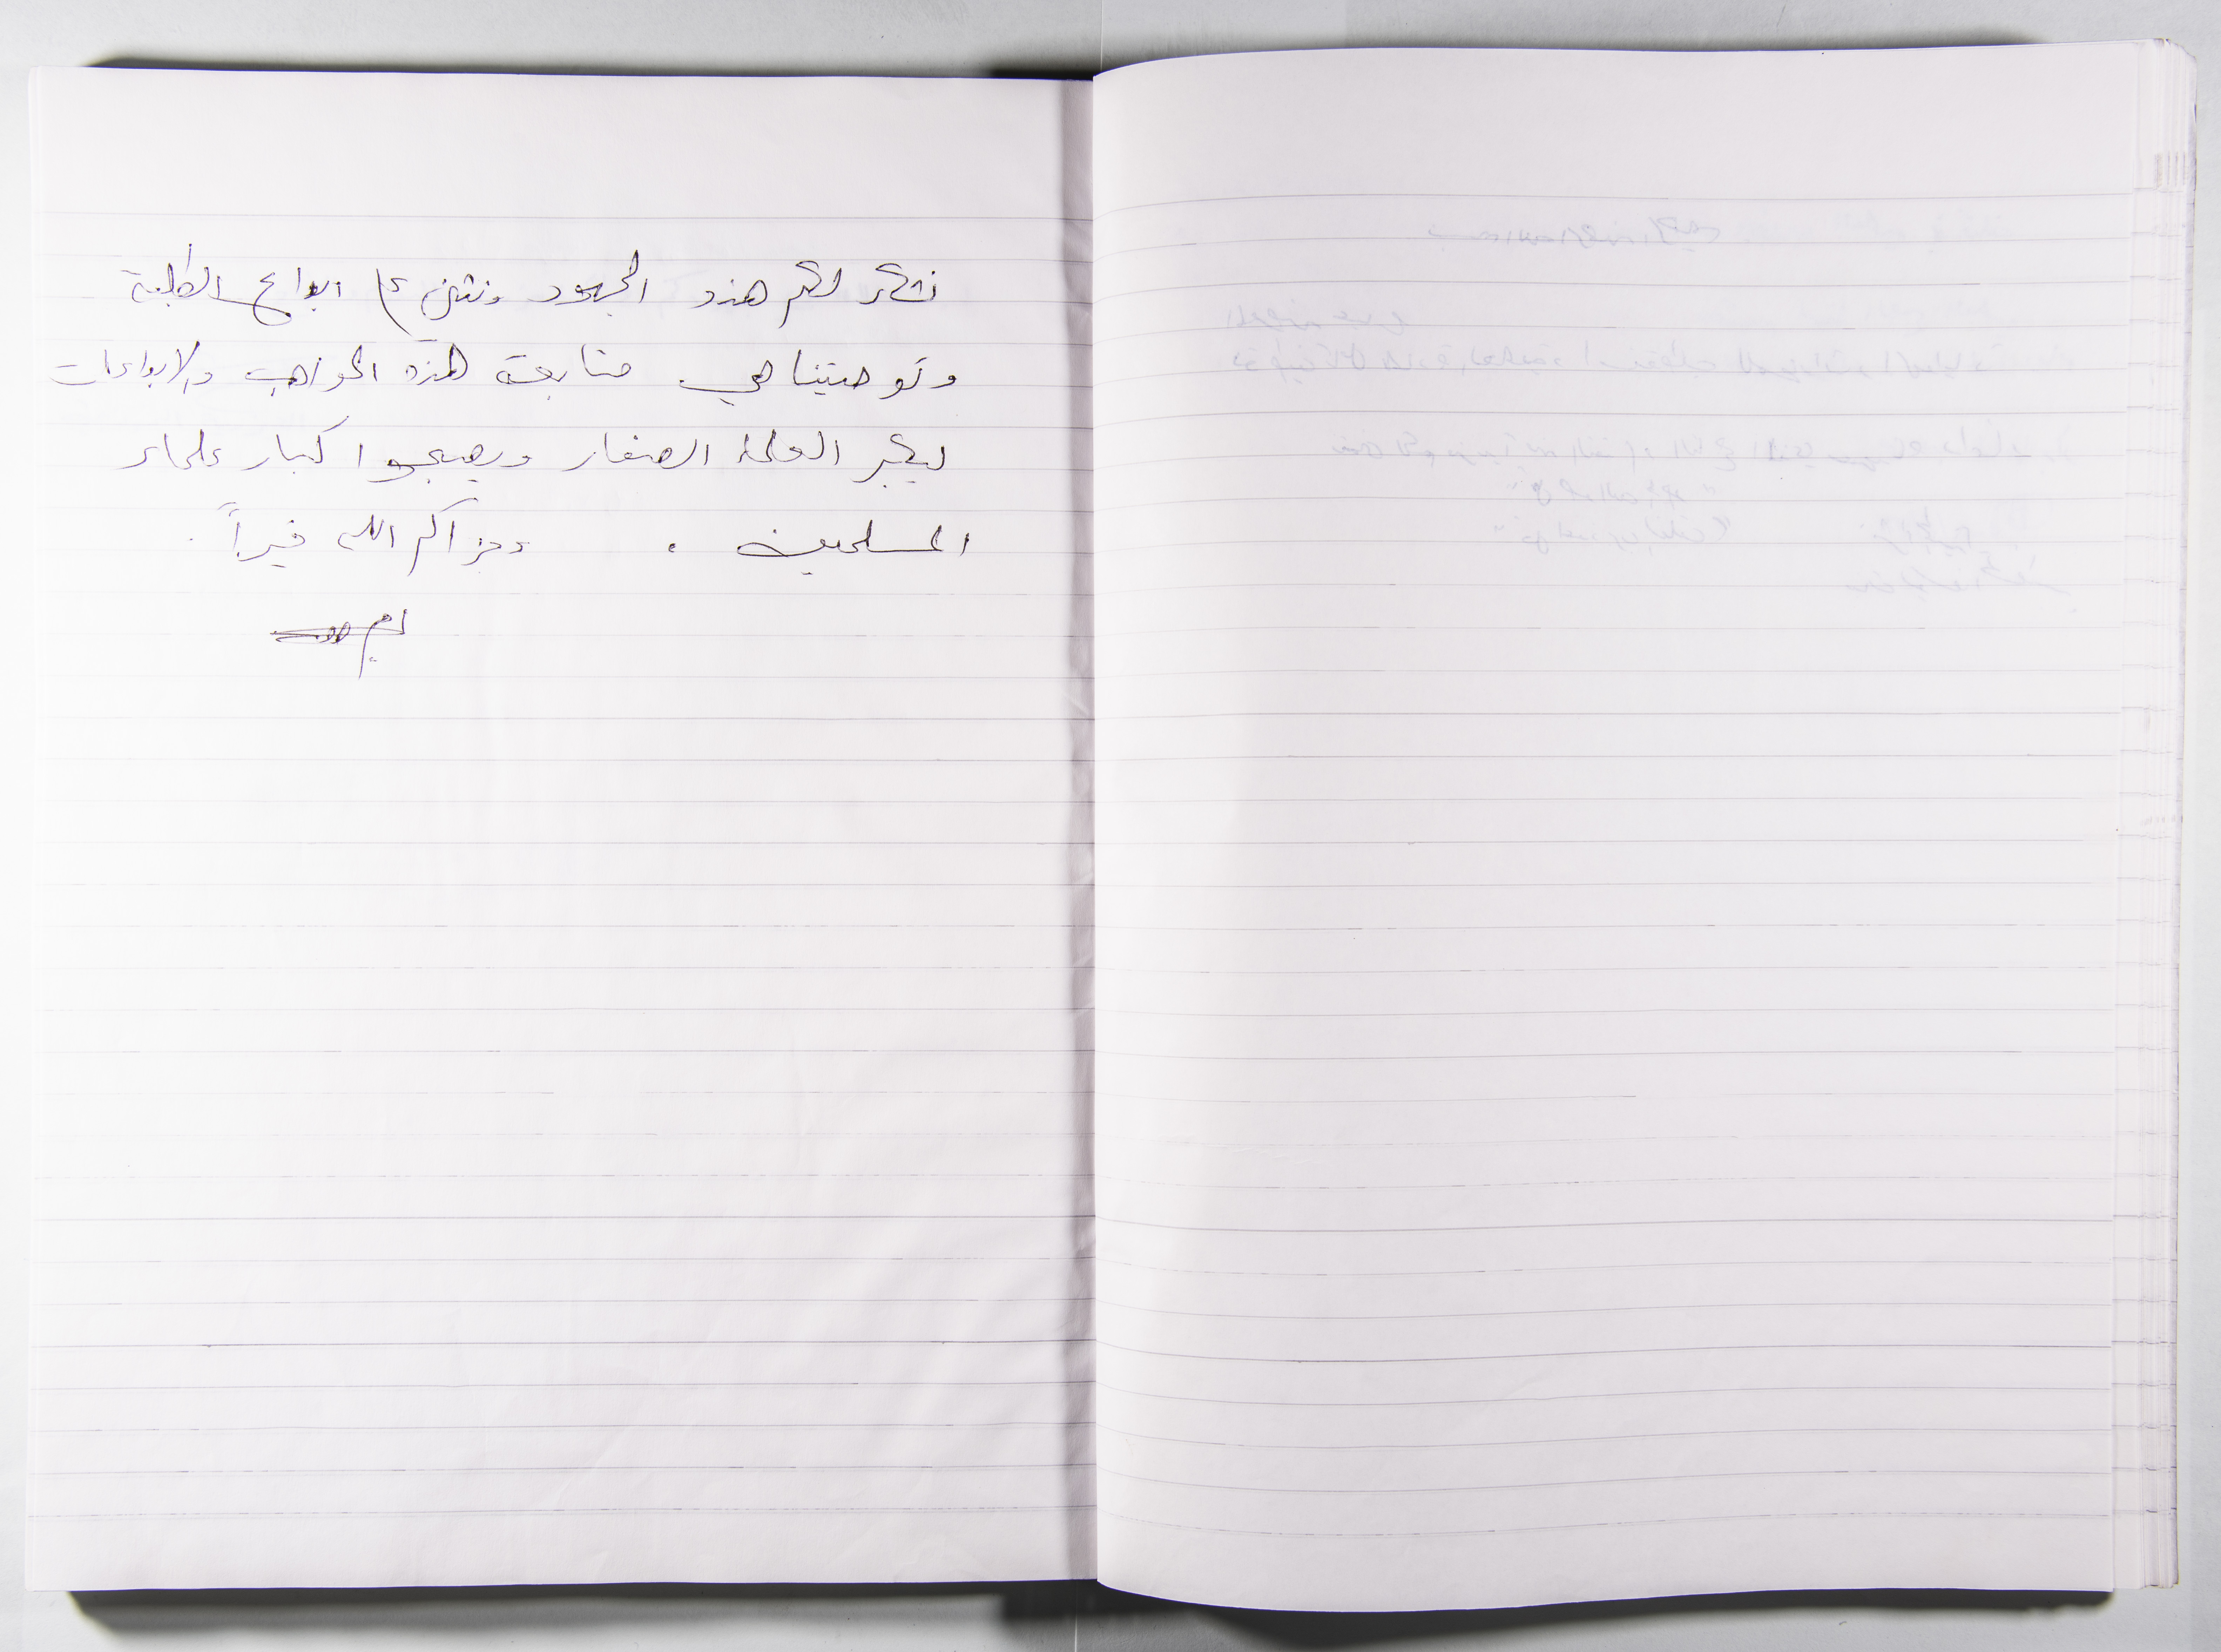 نشكر لكم هذه الجهود ونثني على ابداع الطلبة
وتوصيتنا هي متابعة هذه المواهب والابداعات
ليكبر العلماء الصغار ويصبحوا كبار علماء
المسلمين . وجزاكم الله خيراً .